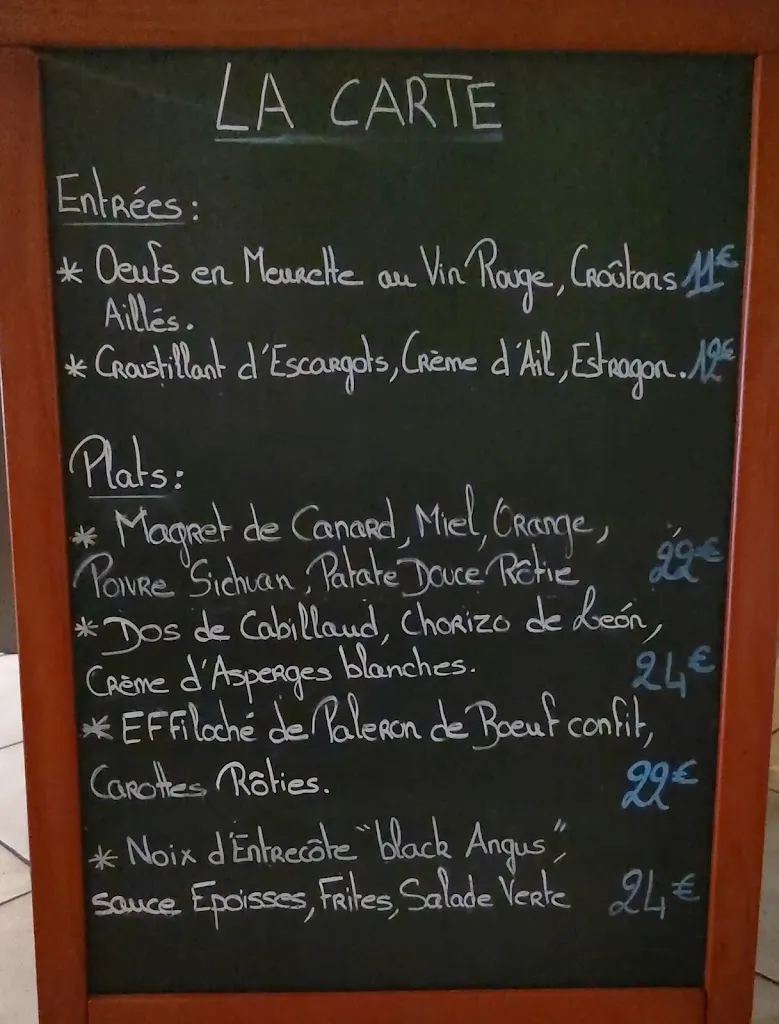 LA CARTE
Entrées :
* Oeufs en Meurette au Vin Rouge, Croûtons 11€
Aillés.
* Croustillant d'Escargots, Crème d'Ail, Estragon. 12€
Plats :
* Magret de Canard, Miel, Orange,
Poivre Sichuan, Patate Douce Rôtie 22€
* Dos de Cabillaud, Chorizo de León,
Crème d'Asperges blanches. 24€
* Effiloché de Paleron de Boeuf confit,
Carottes Rôties. 22€
* Noix d'Entrecôte "black Angus",
sauce Epoisses, Frites, Salade Verte 24€